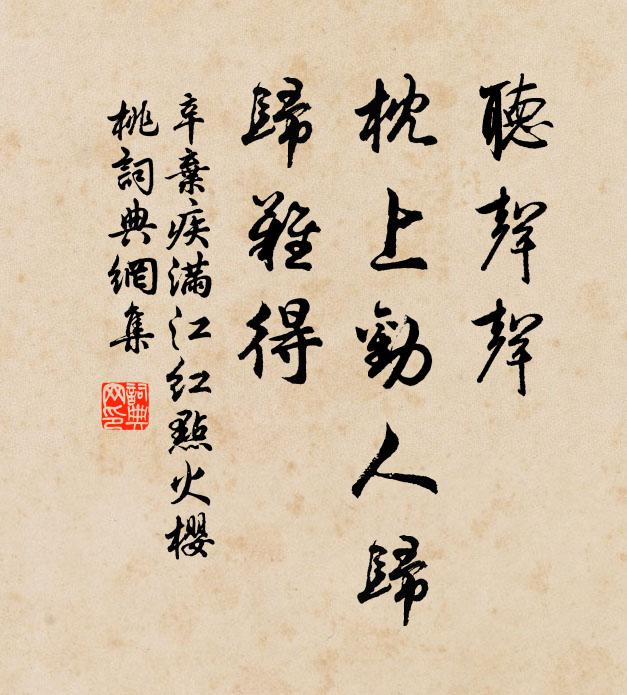 聽聲聲
枕上勸人歸
歸難得
辛棄疾滿江紅點火櫻
桃詞典網集
詞典网印